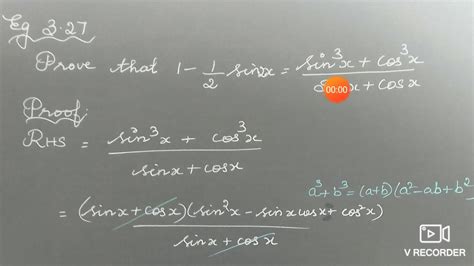 Eg 3.27
Prove that 1 - 1/2 sin2x = (sin³x + cos³x) / (s x + cosx)
00:00
Proof:
RHS = (sin³x + cos³x) / (sinx + cosx)
a³+b³ = (a+b)(a²-ab+b²
= (sinx + cosx)(sin²x - sinx cosx + cos²x) / (sinx + cosx)
V RECORDER